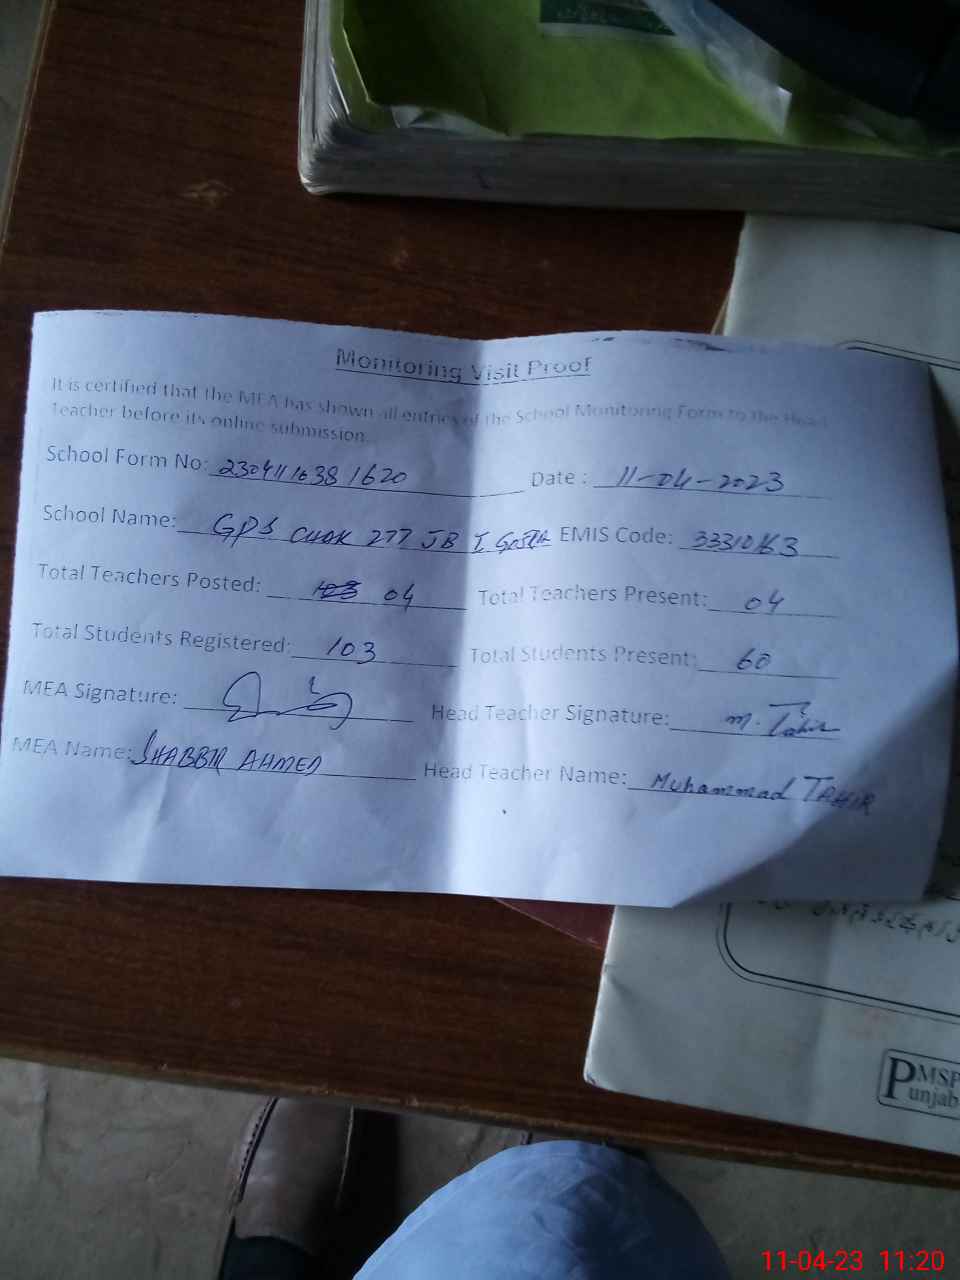 Monitoring Visit Proof
It is certified that the MEA has shown all entries of the School Monitoring Form to the Head
Teacher before its online submission.
School Form No: 230411 1638 1620 Date : 11-04-2023
School Name: GPS CHAK 277 JB I EMIS Code:
Total Teachers Posted: 04 Total Teachers Present: 04
Total Students Registered: 103 Total Students Present: 60
MEA Signature: Head Teacher Signature: M. Tahir
MEA Name: SHABBIR AHMED Head Teacher Name: Muhammad TAHIR
PMSP
Punjab
11-04-23 11:20